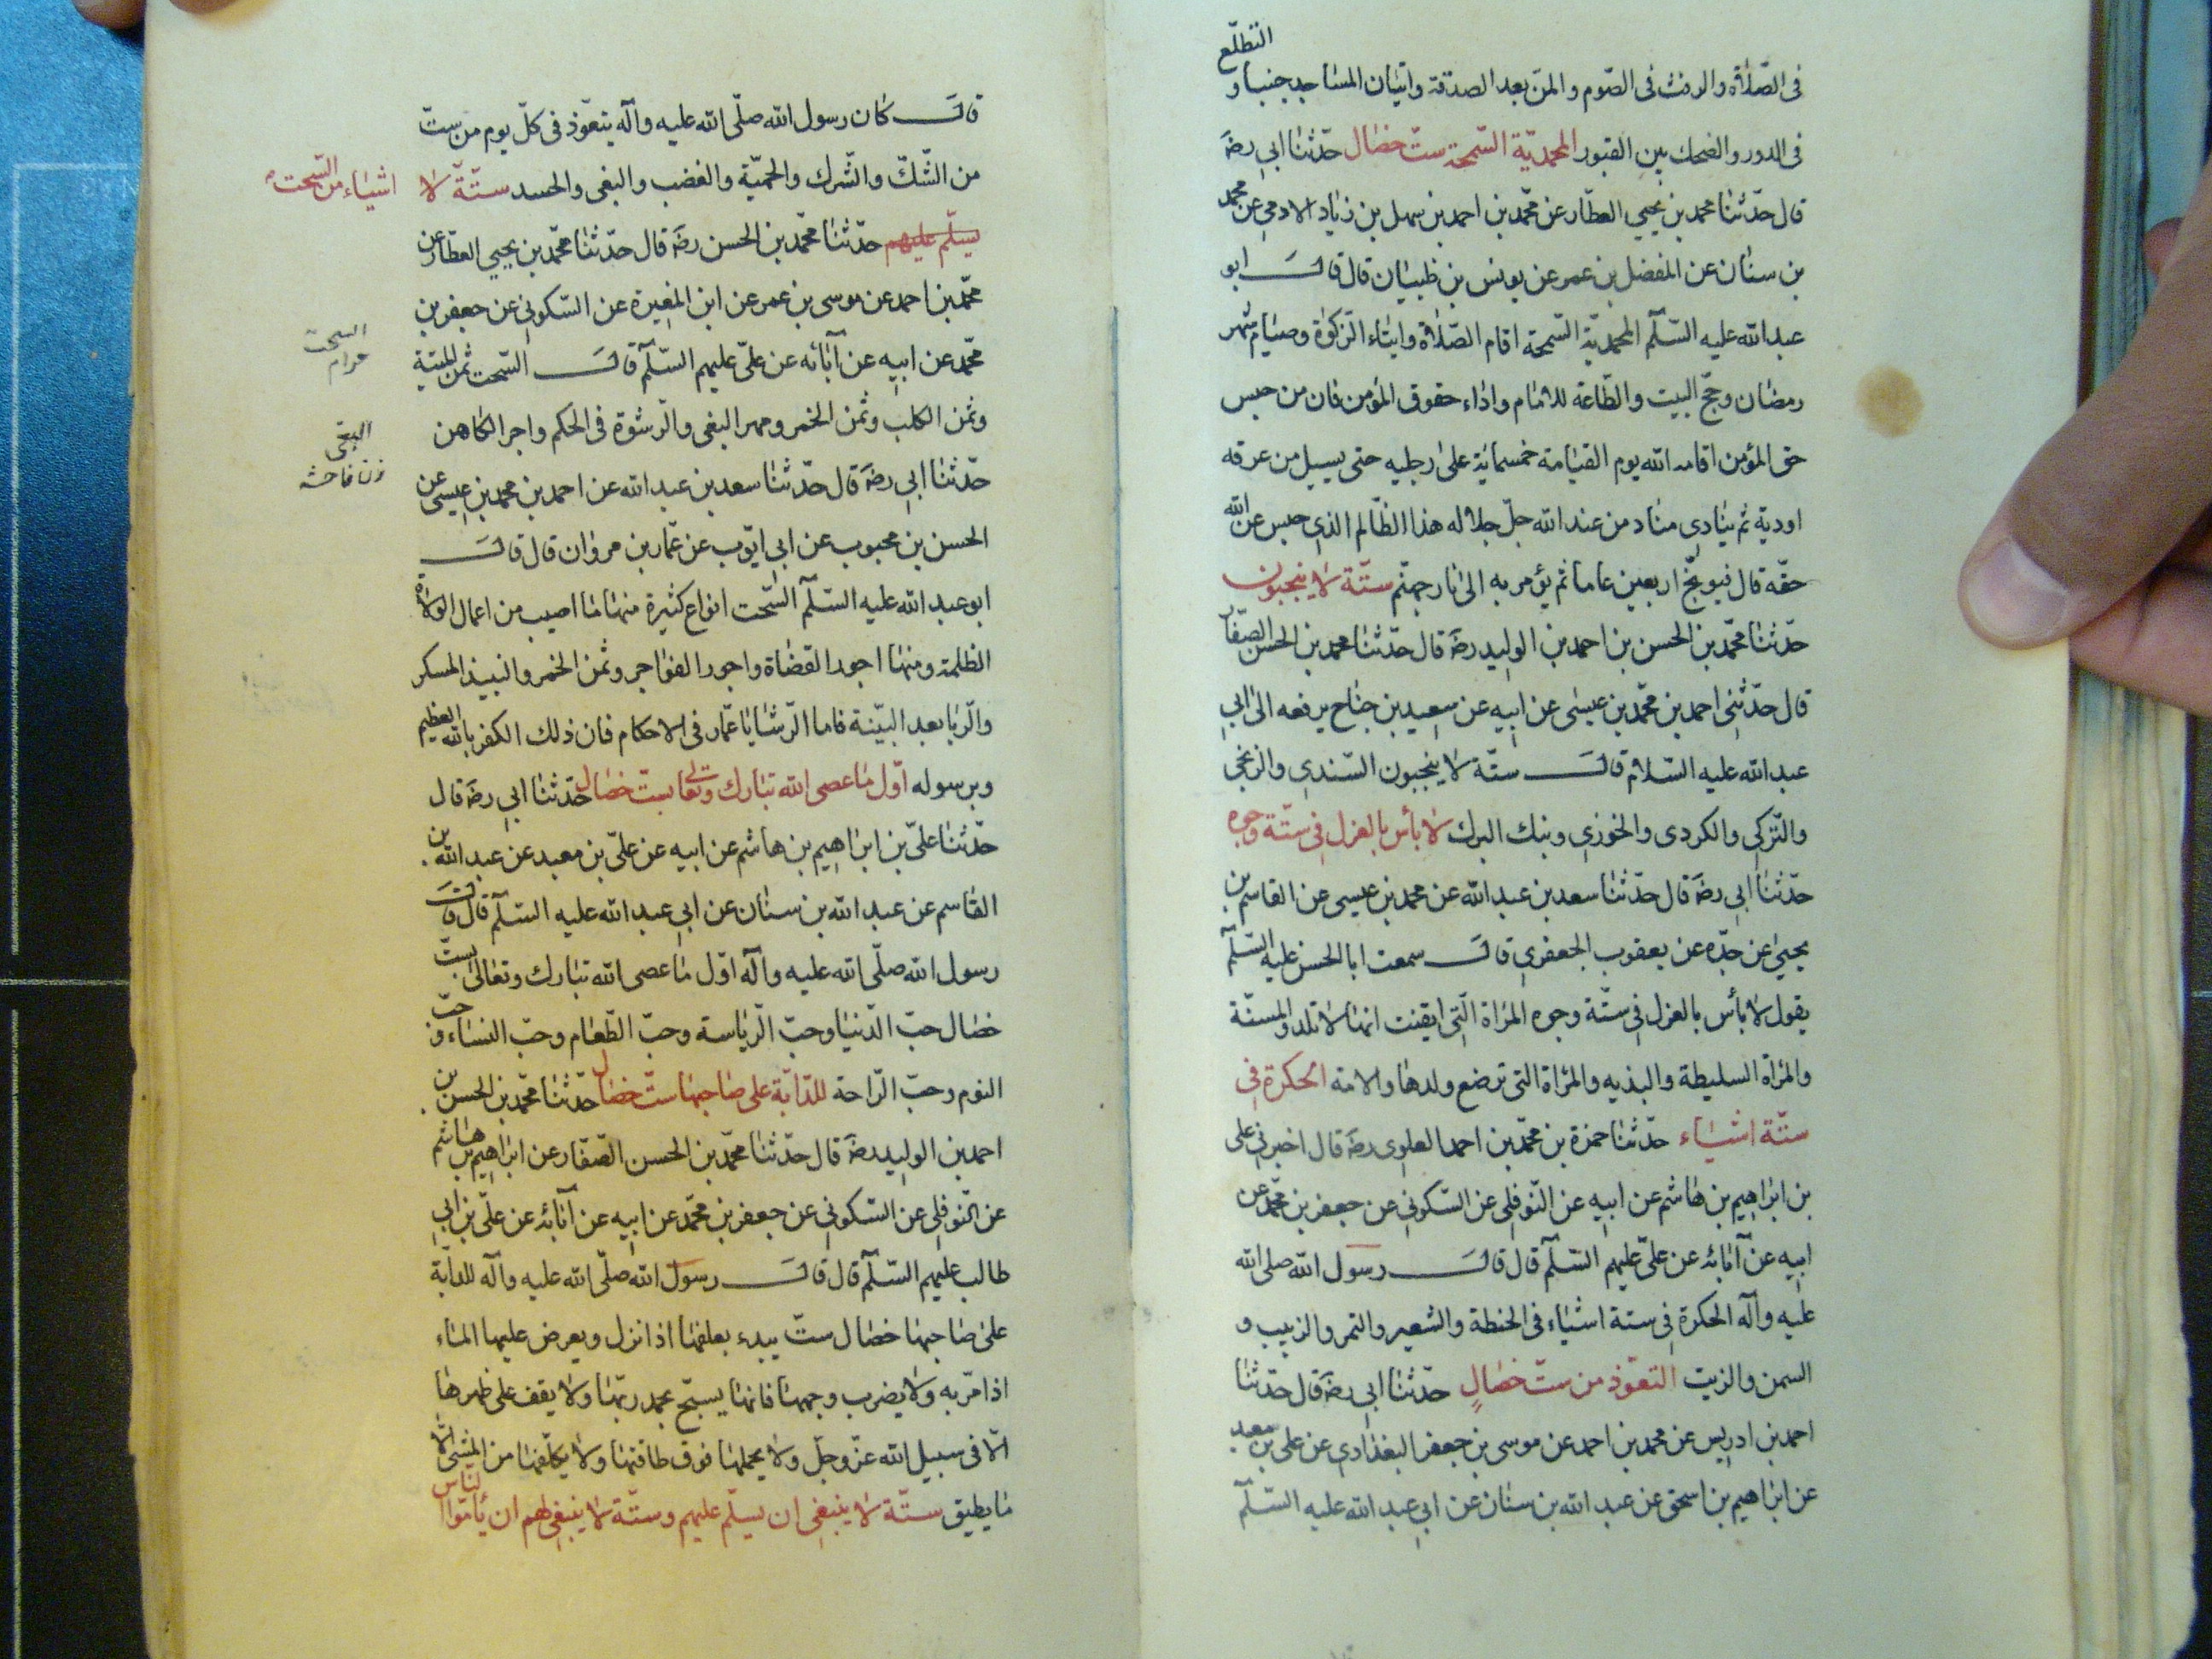 التطلّع
فى الصّلاة والرفث فى الصّوم والمنّ بعد الصدقة واتيان المساجد جنبا و
فى الدور والضحك بين القبور المحمديّة السّمحة ستّ خصال حدّثنا ابى رضه
قال حدّثنا محمد بن يحيى العطّار عن محمّد بن احمد بن سهل بن زياد الادمى عن محمد
بن سنان عن المفضل بن عمر عن يونس بن ظبيان قال قال ابو
عبد الله عليه السّلم المحمديّة السّمحة اقام الصّلاة وايتاء الزّكوة وصيام شهر
رمضان وحجّ البيت والطّاعة للامام واداء حقوق المؤمن فان من حبس
حق المؤمن اقامه الله يوم القيامة خمسمائة على رجليه حتى يسيل من عرقه
اودية ثم ينادى مناد من عند الله جلّ جلاله هذا الظّالم الذى حبس عن الله
حقّه قال فيوبّخ اربعين عاما ثم يؤمر به الى نار جهنّم ستّة لا ينجبون
حدّثنا محمّد بن الحسن بن احمد بن الوليد رضه قال حدّثنا محمد بن الحسن الصفّار
قال حدّثنى احمد بن محمّد بن عيسى عن ابيه عن سعيد بن جناح يرفعه الى ابى
عبد الله عليه السّلام قال ستّة لا ينجبون السّندى والزنجى
والتّركى والكردى والخوزى ونبك البرك لا بأس بالعزل فى ستّة وجوه
حدّثنا ابى رضه قال حدّثنا سعد بن عبد الله عن محمد بن عيسى عن القاسم بن
يحيى عن جدّه عن يعقوب الجعفرى قال سمعت ابا الحسن عليه السّلم
يقول لا بأس بالعزل فى ستّة وجوه المراة الّتى ايقنت انها لا تلد والمسنّة
والمراة السليطة والبذيه والمراة التى ترضع ولدها والامة الحكرة فى
ستّة اشياء حدّثنا حمزة بن محمّد بن احمد العلوى رضه قال اخبرنى على
بن ابراهيم بن هاشم عن ابيه عن النّوفلى عن السّكونى عن جعفر بن محمّد عن
ابيه عن آبائه عن علىّ عليهم السّلم قال قال رسول الله صلى الله
عليه وآله الحكرة فى ستة اشياء فى الحنطة والشعير والتمر والزبيب و
السمن والزيت التعوّذ من ستّ خصالٍ حدّثنا ابى رضه قال حدّثنا
احمد بن ادريس عن محمد بن احمد عن موسى بن جعفر البغدادى عن على بن معبد
عن ابراهيم بن اسحق عن عبد الله بن سنان عن ابى عبد الله عليه السّلم
قال كان رسول الله صلّى الله عليه وآله يتعوّذ فى كلّ يوم من ستّ
من الشّكّ والشّرك والحميّة والغضب والبغى والحسد ستّة لا
اشياء من السّحت
يسلّم عليهم حدّثنا محمّد بن الحسن رضه قال حدّثنا محمّد بن يحيى العطّار عن
محمّد بن احمد عن موسى بن عمر عن ابن المغيرة عن السّكونى عن جعفر بن
محمّد عن ابيه عن آبائه عن علىّ عليهم السّلم قال السّحت ثمن الميتة
السحت
حرام
وثمن الكلب وثمن الخمر ومهر البغى والرّشوة فى الحكم واجر الكاهن
البغى
زن فاحشه
حدّثنا ابى رضه قال حدّثنا سعد بن عبد الله عن احمد بن محمد بن عيسى عن
الحسن بن محبوب عن ابى ايّوب عن عمّار بن مروان قال قال
ابو عبد الله عليه السّلم السّحت انواع كثيرة منها ما اصيب من اعمال الولاة
الظلمة ومنها اجور القضاة واجور الفواجر وثمن الخمر والنبيذ المسكر
والرّبا بعد البيّنة فاما الرّشا يا عمّار فى الاحكام فان ذلك الكفر بالله العظيم
وبرسوله اوّل ما عصى الله تبارك وتعالى بستّ خصال حدّثنا ابى رضه قال
حدّثنا علىّ بن ابراهيم بن هاشم عن ابيه عن علىّ بن معبد عن عبد الله بن
القاسم عن عبد الله بن سنان عن ابى عبد الله عليه السّلم قال قال
رسول الله صلّى الله عليه وآله اوّل ما عصى الله تبارك وتعالى بستّ
خصال حبّ الدّنيا وحبّ الرّياسة وحبّ الطّعام وحبّ النساء و حبّ
النوم وحبّ الرّاحة للدّابّة على صاحبها ستّ خصال حدّثنا محمّد بن الحسن بن
احمد بن الوليد رضه قال حدّثنا محمّد بن الحسن الصّفّار عن ابراهيم بن هاشم
عن النّوفلى عن السّكونى عن جعفر بن محمّد عن ابيه عن آبائه عن علىّ بن ابى
طالب عليهم السّلم قال قال رسول الله صلّى الله عليه وآله للدابّة
على صاحبها خصال ستّ يبدء بعلفها اذا نزل ويعرض عليها الماء
اذا مرّ به ولا يضرب وجهها فانها يسبّح بحمد ربّها ولا يقف على ظهرها
الّا فى سبيل الله عزّ وجلّ ولا يحملها فوق طاقتها ولا يكلّفها من المشى الّا
ما يطيق ستّة لا ينبغى ان يسلّم عليهم وستّة لا ينبغى لهم ان يأمّوا الناس